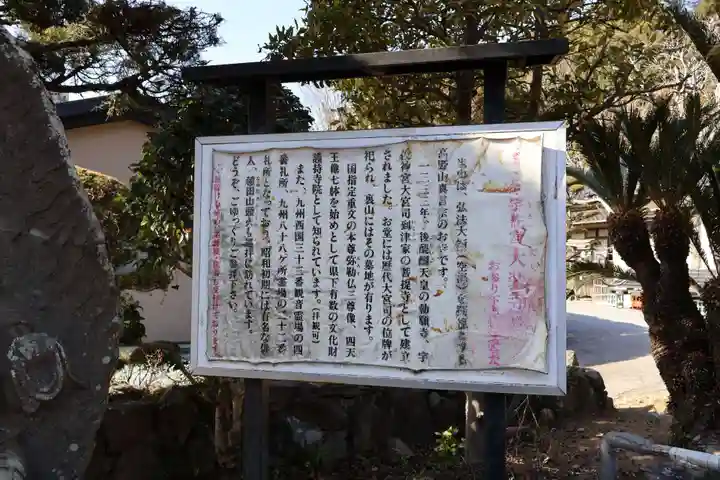 大楽寺
お参り下さいましてありがとう
当山は、弘法大師(空海)を宗祖と
高野山真言宗のお寺です。
一三三三年、後醍醐天皇の勅願寺、宇
佐神宮大宮司到津家の菩提寺として建立
されました。お堂には歴代大宮司の位牌が
祀られ、裏山にはその墓地が有ります。
国指定重文の本尊弥勒仏三尊像、四天
王像七体を始めとして県下有数の文化財
護持寺院として知られています。(拝観可)
また、九州西国三十三番観音霊場の四
番札所、九州八十八ヶ所霊場の二十二番
札所となっており、昭和初期には有名な俳
人、種田山頭火も巡拝に訪れています。
どうぞ、ごゆっくりご参拝下さい。